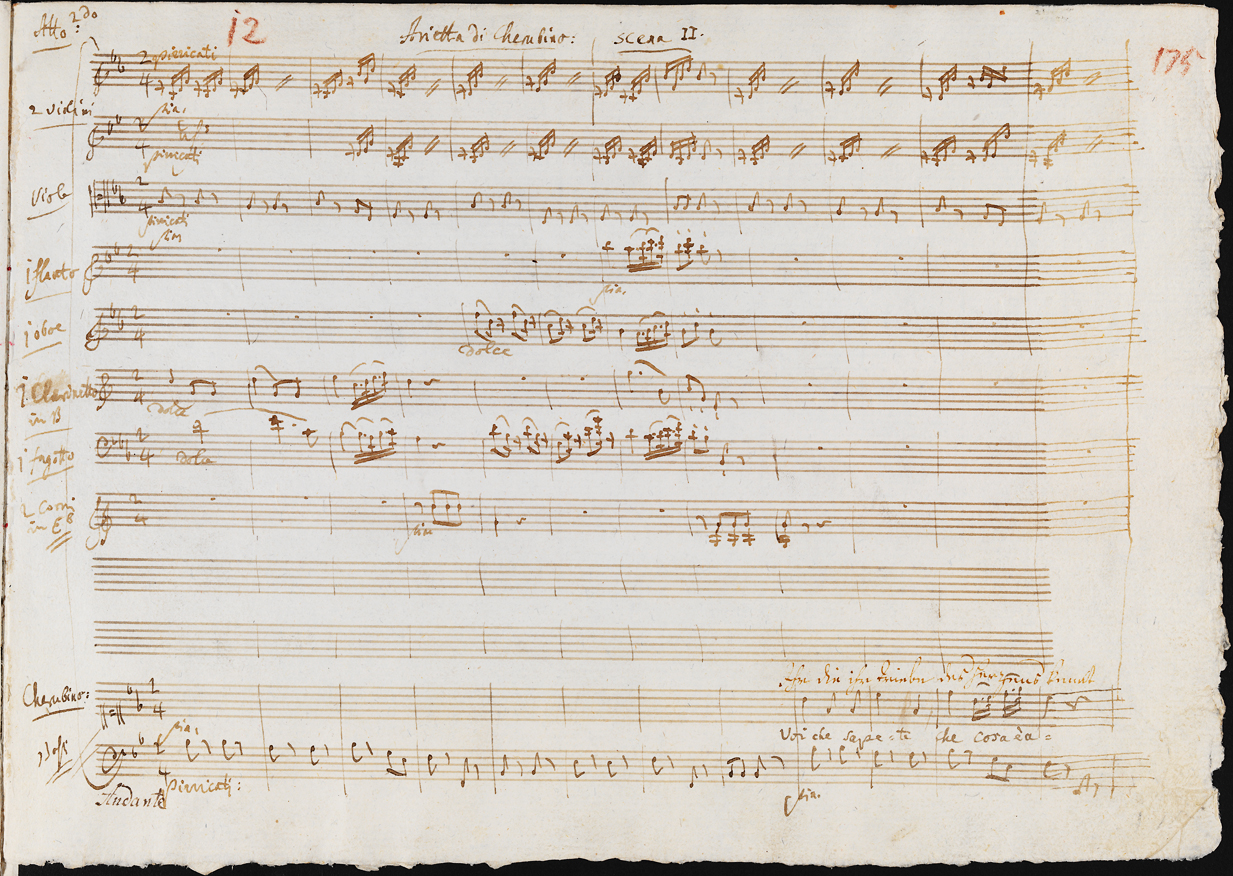 Atto 2do
12
Arietta di Cherubino: scena II.
175
pizzicati
2 violini
pia.
pizzicati
Viole
pizzicati
pia
1 flauto
pia.
1 oboe
dolce
1 Clarinetto
in B
dolce
1 fagotto
dolce
2 Corni
in E♭
pia
Ihr die ihr Triebe des Herzens kennt
Cherubino:
Voi che sapete che cosa è a=
pia.
Bassi
pizzicati:
pia.
Andante